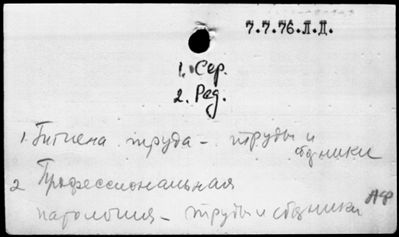 7.7.76.Л.Д.
1. Сер.
2. Ред.
1. Гигиена труда - труды и сборники
2 Профессиональная
патология - труды и сборники АФ